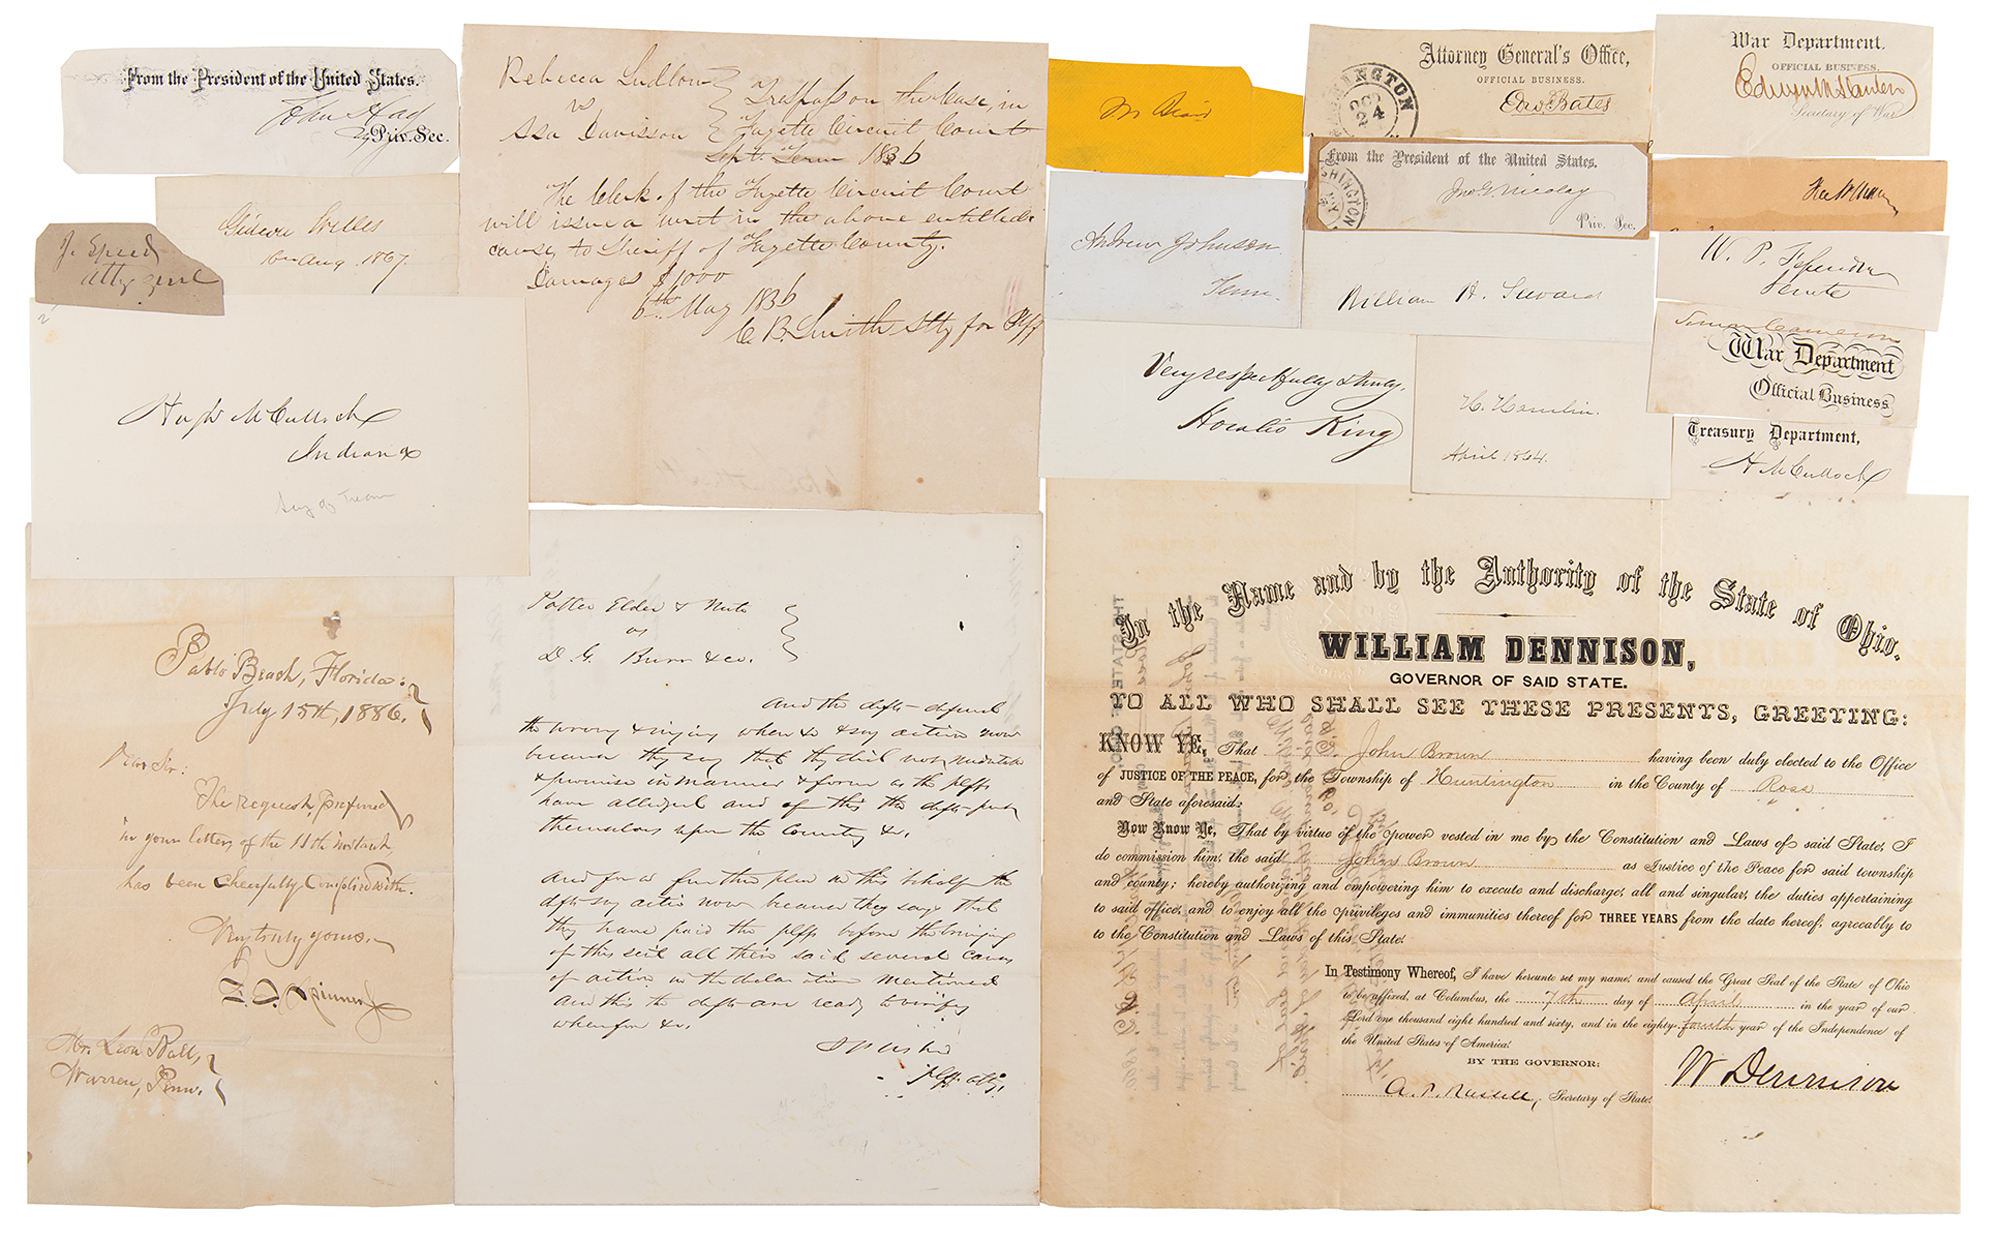 From the President of the United States.
John Hay
Priv. Sec.
Gideon Welles
16 Aug. 1867.
J. Speed
Atty Genl
Hugh McCulloch
Indiana
Secy of Treas
Rebecca Ludlow
vs
Asa Davisson
Trespass on the case, in
Fayette Circuit Court
Sept. Term 1836
The Clerk of the Fayette Circuit Court
will issue a writ in the above entitled
cause, to Sheriff of Fayette County.
Damages $1000
6th May 1836
C. B. Smith Atty for Plff
Attorney General's Office,
OFFICIAL BUSINESS.
Edw. Bates
War Department.
OFFICIAL BUSINESS.
Edwin M Stanton
Secretary of War
From the President of the United States.
Jno. G. Nicolay
Priv. Sec.
Andrew Johnson
Tenn.
William H. Seward
W. P. Fessenden
Senate
Simon Cameron
War Department
Official Business
Very respectfully & truly,
Horatio King
H. Hamlin.
April 1864.
Treasury Department,
H McCulloch
Pablo Beach, Florida:
July 15th, 1886.
Dear Sir:
The request, prefered
in your letter, of the 11th instant,
has been cheerfully complied with.
Very truly yours,
F. E. Spinner
Mr. Leon Ball,
Warren, Penn.
Potter Elder &
vs
D. G. Burr & co.
And the defts defend
the wrong & injury when &c & say actio non
because they say that they did not undertake
& promise in manner & form as the plffs
have alledged and of this the defts put
themselves upon the Country &c.
And for a further plea in this behalf the
defts say actio non because they say that
they have paid the plffs before the bringing
of this suit all their said several causes
of action in the declaration mentioned
and this the defts are ready to verify
wherefore &c.
In the Name and by the Authority of the State of Ohio.
WILLIAM DENNISON,
GOVERNOR OF SAID STATE.
TO ALL WHO SHALL SEE THESE PRESENTS, GREETING:
KNOW YE, That John Brown having been duly elected to the Office
of JUSTICE OF THE PEACE, for the Township of Huntington in the County of Ross
and State aforesaid:
Now Know Ye, That by virtue of the power vested in me by the Constitution and Laws of said State, I
do commission him, the said John Brown as Justice of the Peace for said township
and county; hereby authorizing and empowering him to execute and discharge, all and singular, the duties appertaining
to said office, and to enjoy all the privileges and immunities thereof for THREE YEARS from the date hereof, agreeably to
to the Constitution and Laws of this State.
In Testimony Whereof, I have hereunto set my name, and caused the Great Seal of the State of Ohio
to be affixed, at Columbus, the 7th day of April in the year of our
Lord one thousand eight hundred and sixty, and in the eighty-fourth year of the Independence of
the United States of America.
BY THE GOVERNOR:
W Dennison
A. P. Russell, Secretary of State.